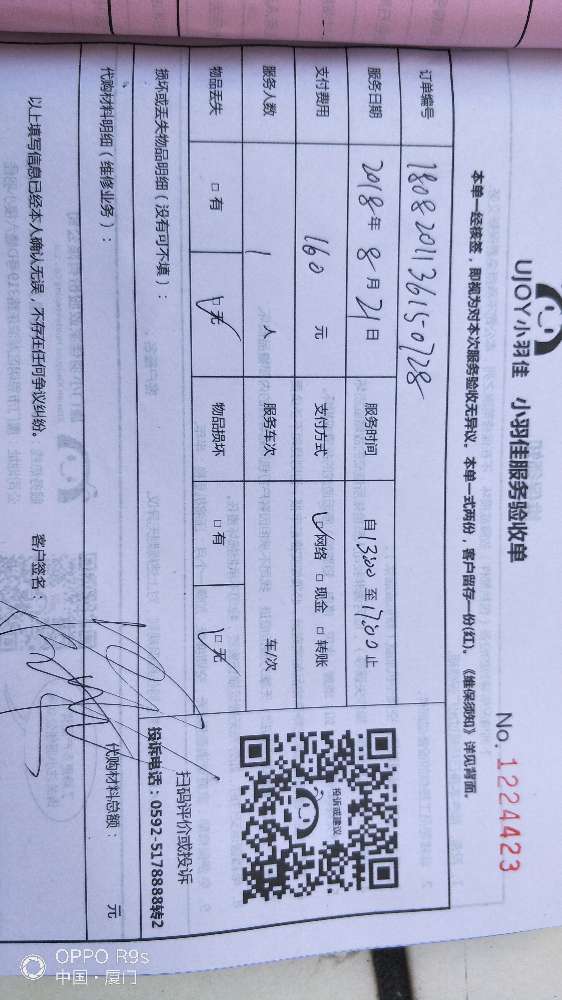 UJOY小羽佳 小羽佳服务验收单
No. 1224423
本单一经核签，即视为对本次服务验收无异议。本单一式两份，客户留存一份(红)。《维保须知》详见背面。
订单编号 180820113615-0728
服务日期 2018年8月21日 服务时间 自13:00至17:00止
支付费用 160元 支付方式 ☑网络 □现金 □转账
服务人数 1人 服务车次 车/次
物品丢失 □有 ☑无 物品损坏 □有 ☑无
损坏或丢失物品明细（没有可不填）：
投诉或建议
扫码评价或投诉
投诉电话：0592-5178888转2
代购材料明细（维修业务）：
代购材料总额： 元
以上填写信息已经本人确认无误，不存在任何争议纠纷。 客户签名：
OPPO R9s
中国·厦门